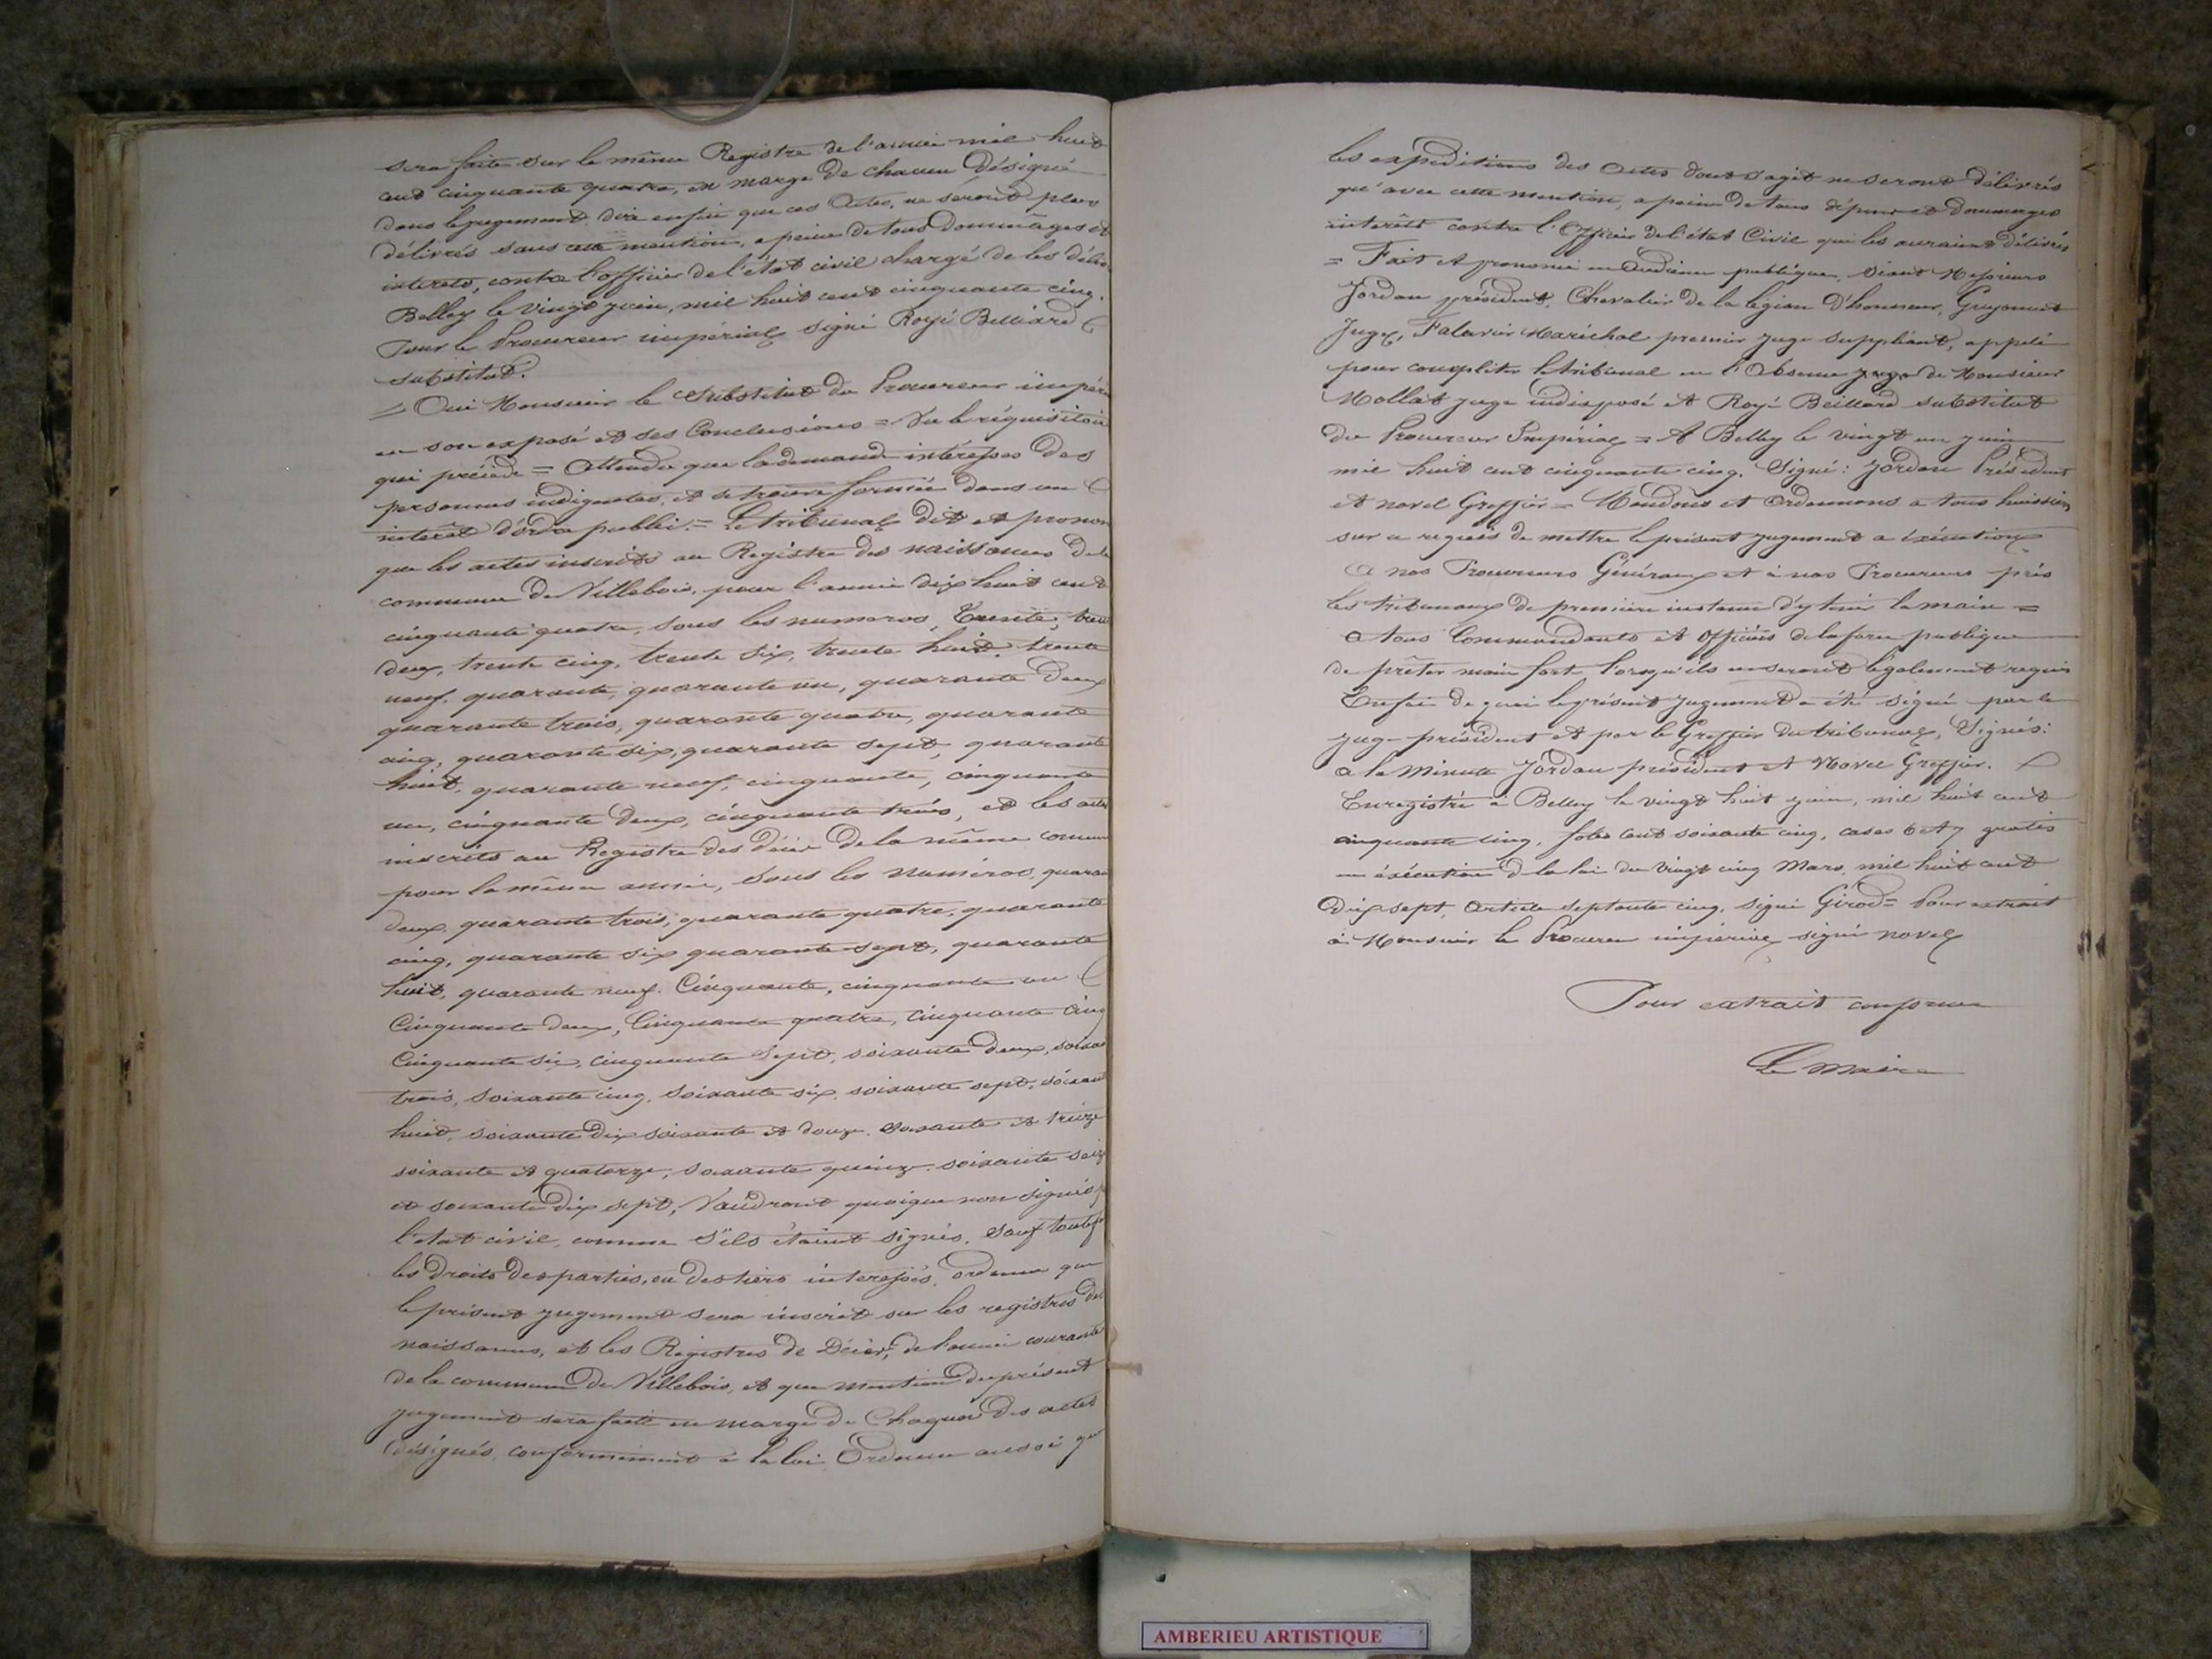 sera faite sur le même Registre de l'année mil huit
cent cinquante quatre, en marge de chacun Désigné
dans le jugement dira enfin que ces Actes, ne seront plus
délivrés sans cette mention, a peine de tous Dommages et
interets, contre l'officier de l'état civil chargé de les déliv
Belley le vingt juin, mil huit cent cinquante cinq.
Pour le Procureur impérial signé Royé Belliard
substitut.
= Oui Monsieur le Substitut du Procureur impér
en son exposé et ses Conclusions = Vu le réquisitoire
qui précède = Attendu que la demande intéresse Des
personnes indigentes, et se trouve formée dans un
intérêt d'ordre public. = Le tribunal dit et pronon
que les actes inscrits au Registre des naissances de la
commune de Villebois, pour l'année dix huit cent
cinquante quatre, sous les numéros, Trente, trente
deux, trente cinq, trente six, trente huit, trente
neuf, quarante, quarante un, quarante deux
quarante trois, quarante quatre, quarante
cinq, quarante six, quarante sept, quarante
huit, quarante neuf, cinquante, cinquante
un, cinquante deux, cinquante trois, et les actes
inscrits au Registre des décès de la même commun
pour la même année, sous les numéros, quaran
deux, quarante trois, quarante quatre, quarante
cinq, quarante six quarante sept, quarante
huit, quarante neuf. Cinquante, cinquante un
Cinquante deux, Cinquante quatre, cinquante cinq
Cinquante six, cinquante sept, soixante deux, soixan
trois, soixante cinq, soixante six, soixante sept, soixant
huit, soixante dix soixante et douze. Soixante et treize
soixante et quatorze, soixante quinze. soixante seize
et soixante dix sept, Vaudront quoique non signés
l'état civil, comme s'ils étaient signés. Sauf toutef
les droits des parties, ou des tiers interessés, ordonne que
le présent jugement sera inscrit sur les registres des
naissances, et les Registres de Décès, de l'année courante
de la commune de Villebois, et que mention du présent
jugement sera faite en marge de Chaque des actes
désignés, conformément à la loi. Ordonne aussi que
les expeditions des Actes dont s'agit ne seront délivrés
qu'avec cette mention, a peine de tous dépens et dommages
interêts contre l'Officier de l'état Civil qui les auraient délivrés
= Fait et prononcé en Audience publique, séant Messieurs
Jordan président, Chevalier de la légion d'honneur, Guyonnet
Juge, Falavier Maréchal premier juge suppléant, appelé
pour compléter le tribunal en l'Absence de Monsieur
Mollat juge indisposé et Royé Beillard substitut
du Procureur Impérial = A Belley le vingt un juin
mil huit cent cinquante cinq. Signé: Jordan Président
et novel Greffier = Mandons et Ordonnons a tous huissiers
sur ce requis de mettre le présent jugement a éxécution
A nos Procureurs Généraux et à nos Procureurs près
les tribunaux de première instance d'y tenir la main =
a tous Commandants et Officiers de la force publique
de prêter main forte lorsqu'ils en seront légalement requis
En foi de quoi le présent jugement a été signé par le
juge président et par le Greffier du tribunal, Signés:
a la Minute Jordan président et Novel Greffier.
Enregistré à Belley le vingt huit juin, mil huit cent
cinquante cinq, folio cent soixante cinq, cases 6 et 7 gratis
en éxécution de la loi du vingt cinq Mars, mil huit cent
dix sept, article septante cinq, signé Girod = Pour extrait
à Monsieur le Procureur impérial signé novel
Pour extrait conforme
Le Maire
AMBERIEU ARTISTIQUE